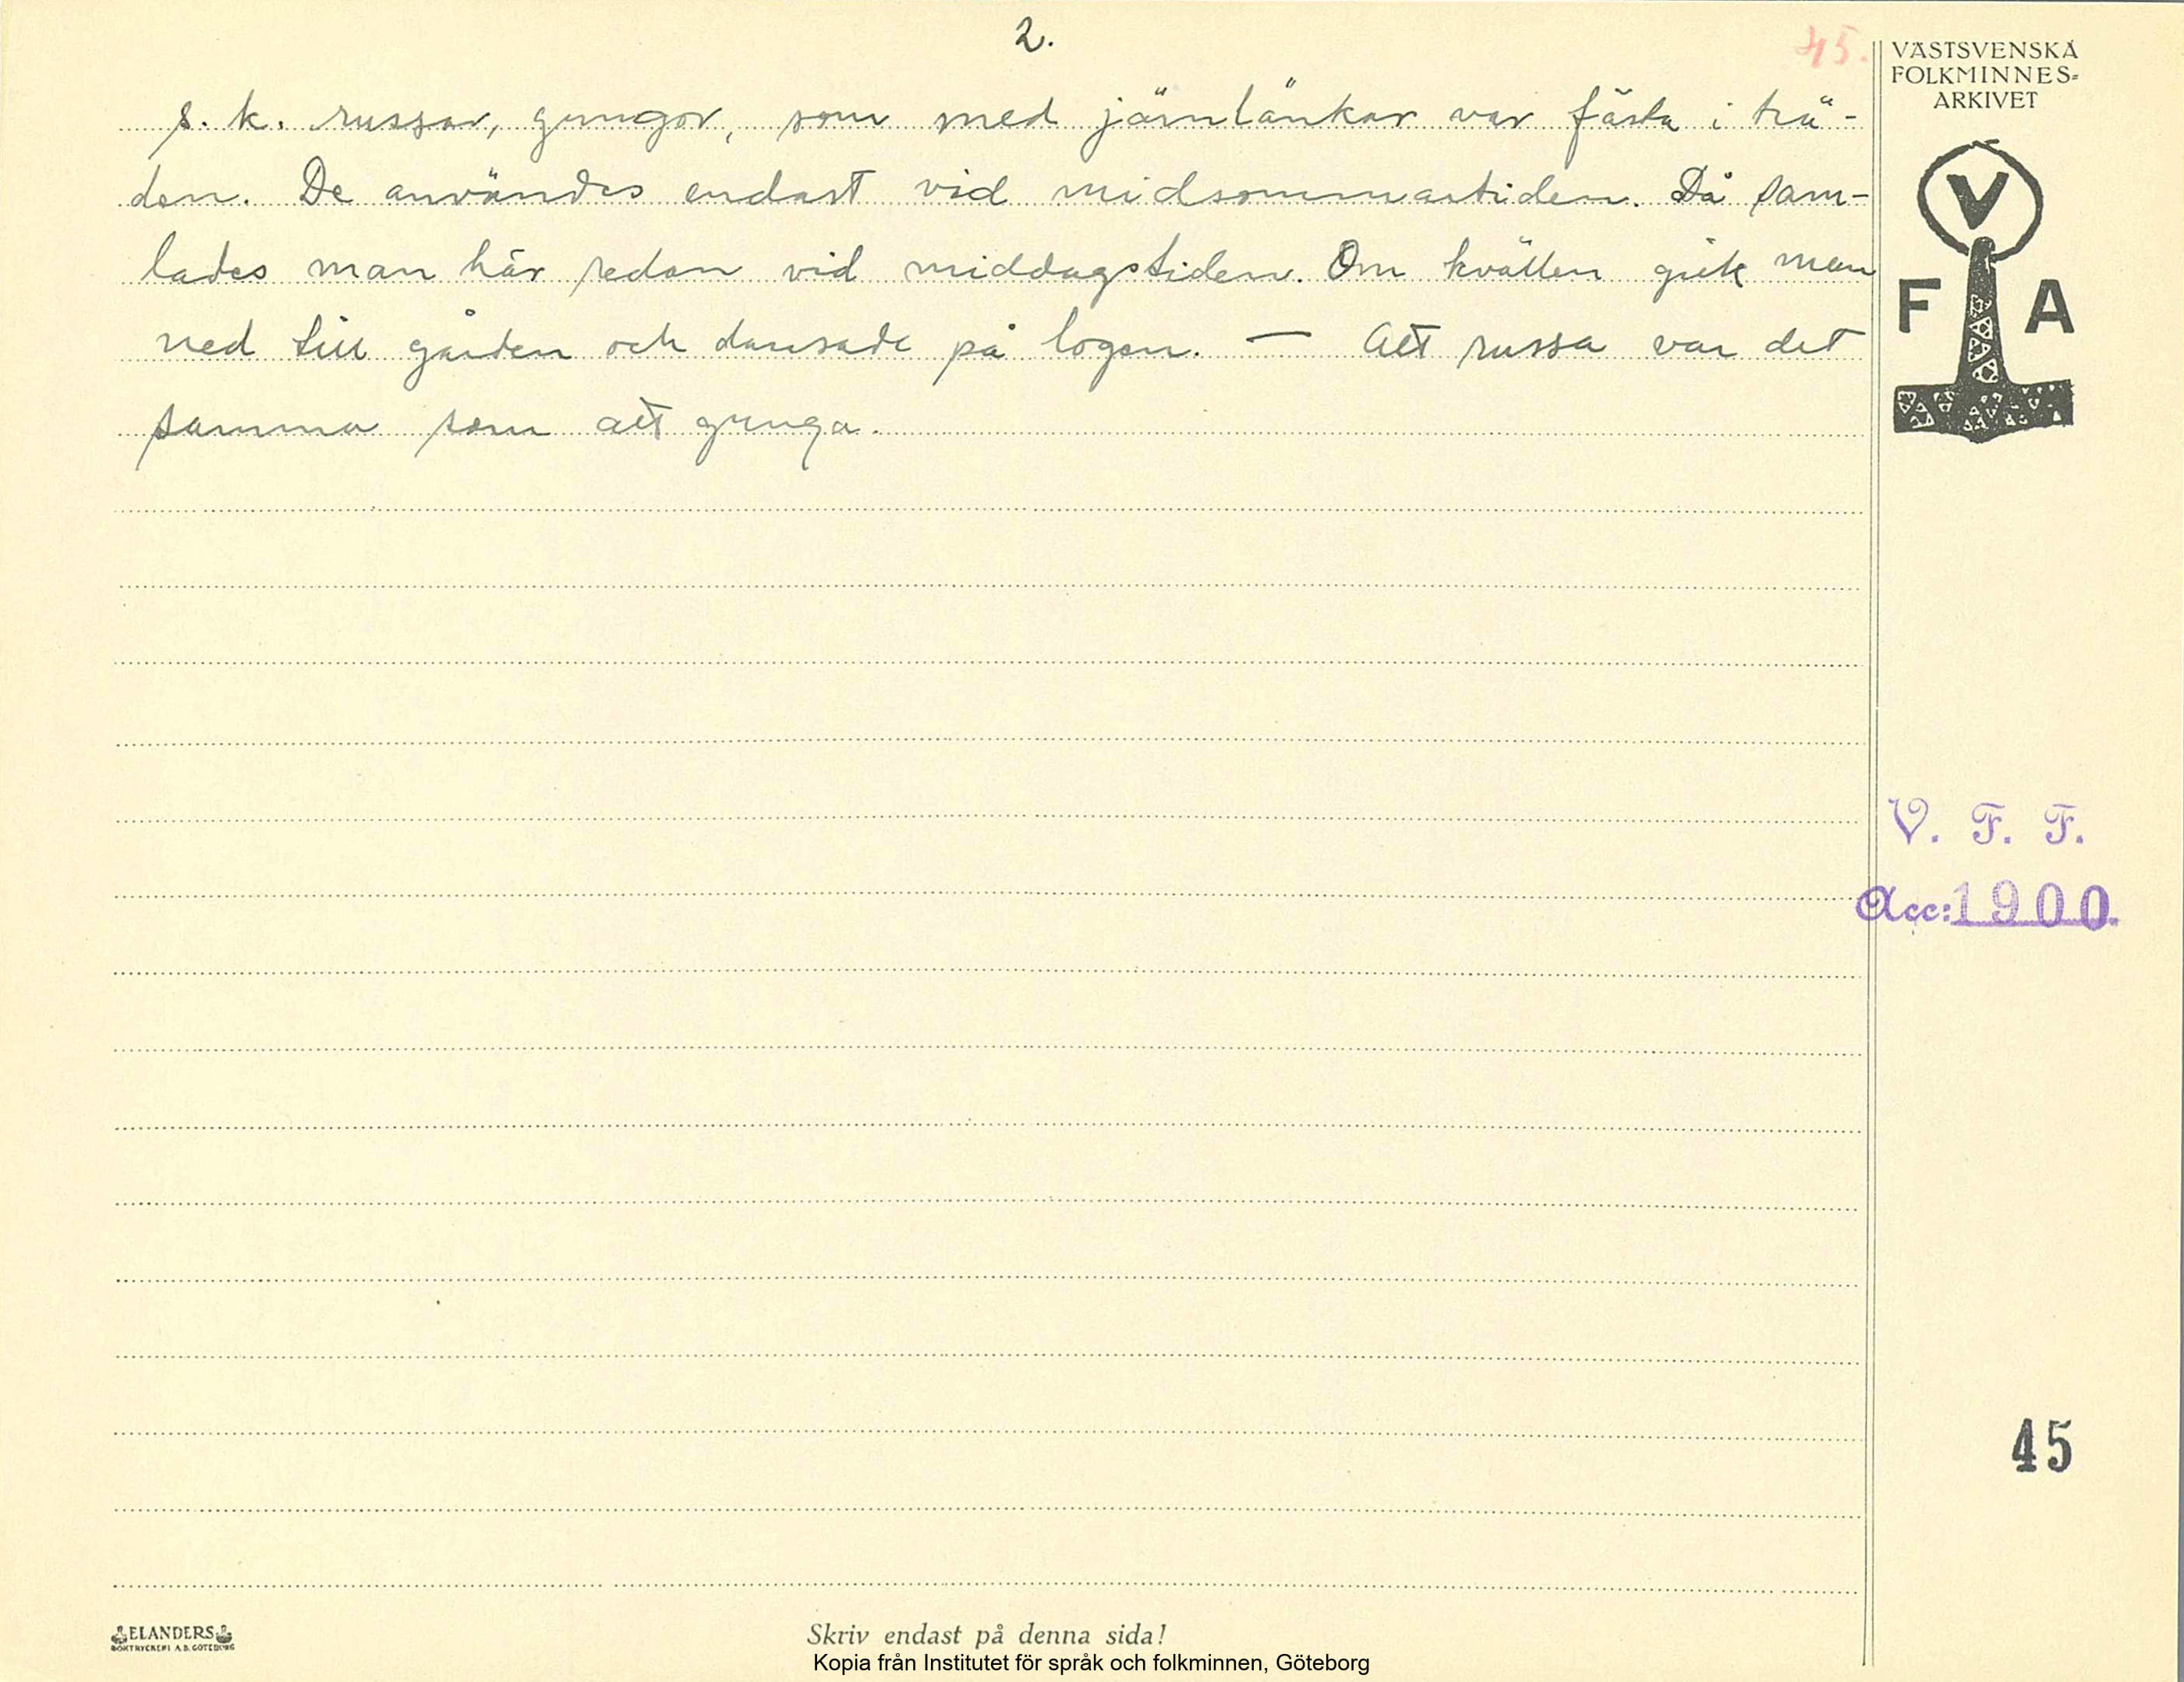 2.
45.
s. k. russar, gungor, som med järnlänkar var fästa i trä-
den. De användes endast vid midsommartiden. Då sam-
lades man här redan vid middagstiden. Om kvällen gick man
ned till gården och dansade på logen. — Att russa var det
samma som att gunga.
VÄSTSVENSKA
FOLKMINNES-
ARKIVET
V
F A
V. F. F.
Acc: 1900.
45
ELANDERS
BOKTRYCKERI A.B. GÖTEBORG
Skriv endast på denna sida!
Kopia från Institutet för språk och folkminnen, Göteborg